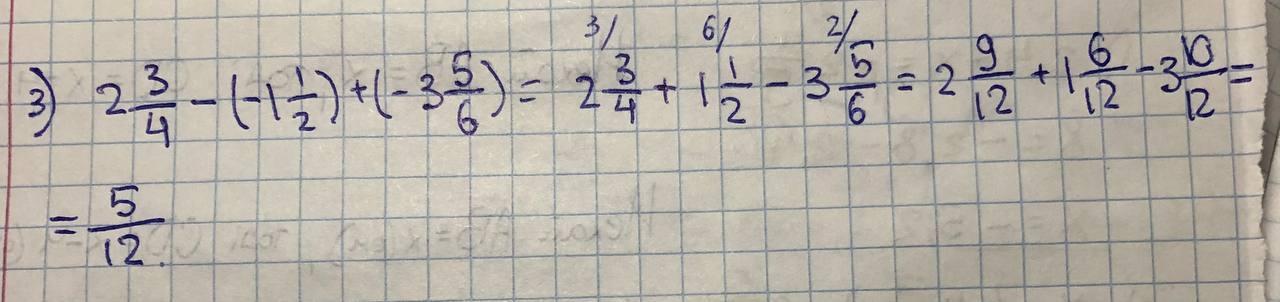 3) 2 3/4 - (-1 1/2) + (-3 5/6) = 2 3/4 3/ + 1 1/2 6/ - 3 5/6 2/ = 2 9/12 + 1 6/12 - 3 10/12 =
= 5/12.